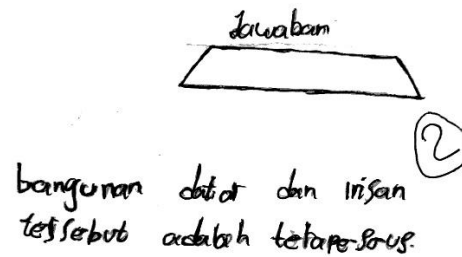 Jawaban
2
bangunan datar dan irisan
tersebut adalah tetapesous.